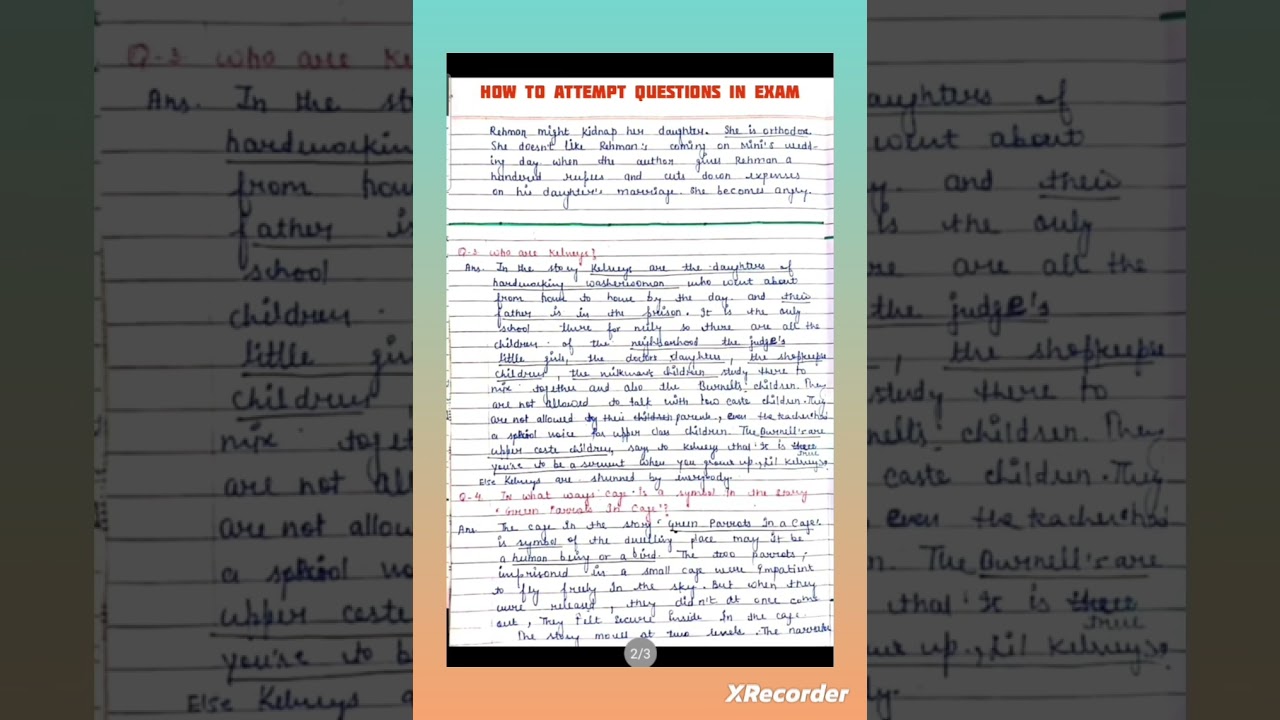 HOW TO ATTEMPT QUESTIONS IN EXAM
Rehman might kidnap her daughter. She is orthodox.
She doesn't like Rehman's coming on Mini's wedd-
ing day when the author gives Rehman a
hundered rupees and cuts down expenses
on his daughter's marriage. She becomes angry.
Q-3 who are Kelveys?
Ans. In the story Kelveys are the daughters of
hardworking washerwoman who went about
from house to house by the day. and their
father is in the prison. It is the only
school there for so there are all the
children. of the neighbourhood the judge's
little girls, the doctor daughters, the shopkeeper
children, the milkman's children study there to
mix together and also the Burnell's children. They
are not allowed to talk with low caste children. They
are not allowed by their children parents, even the teacher has
a special voice for upper class children. The Burnell's are
upper caste children, says to Kelveys that 'It is true
you're to be a servent when you grown up, Lil Kelveys.
Else Kelveys are shunned by everybody.
Q-4 In what ways cage is a symbol in the story
'Green Parrots In Cage'?
Ans The cage in the story 'Green Parrots in a Cage'.
is symbol of the dwelling place may it be
a human being or a bird. The two parrots,
imprisoned in a small cage were impatient
to fly freely in the sky. But when they
were released, they didn't at once come
out, They felt secure inside in the cage.
The story moves at two levels. The narrator
2/3
XRecorder